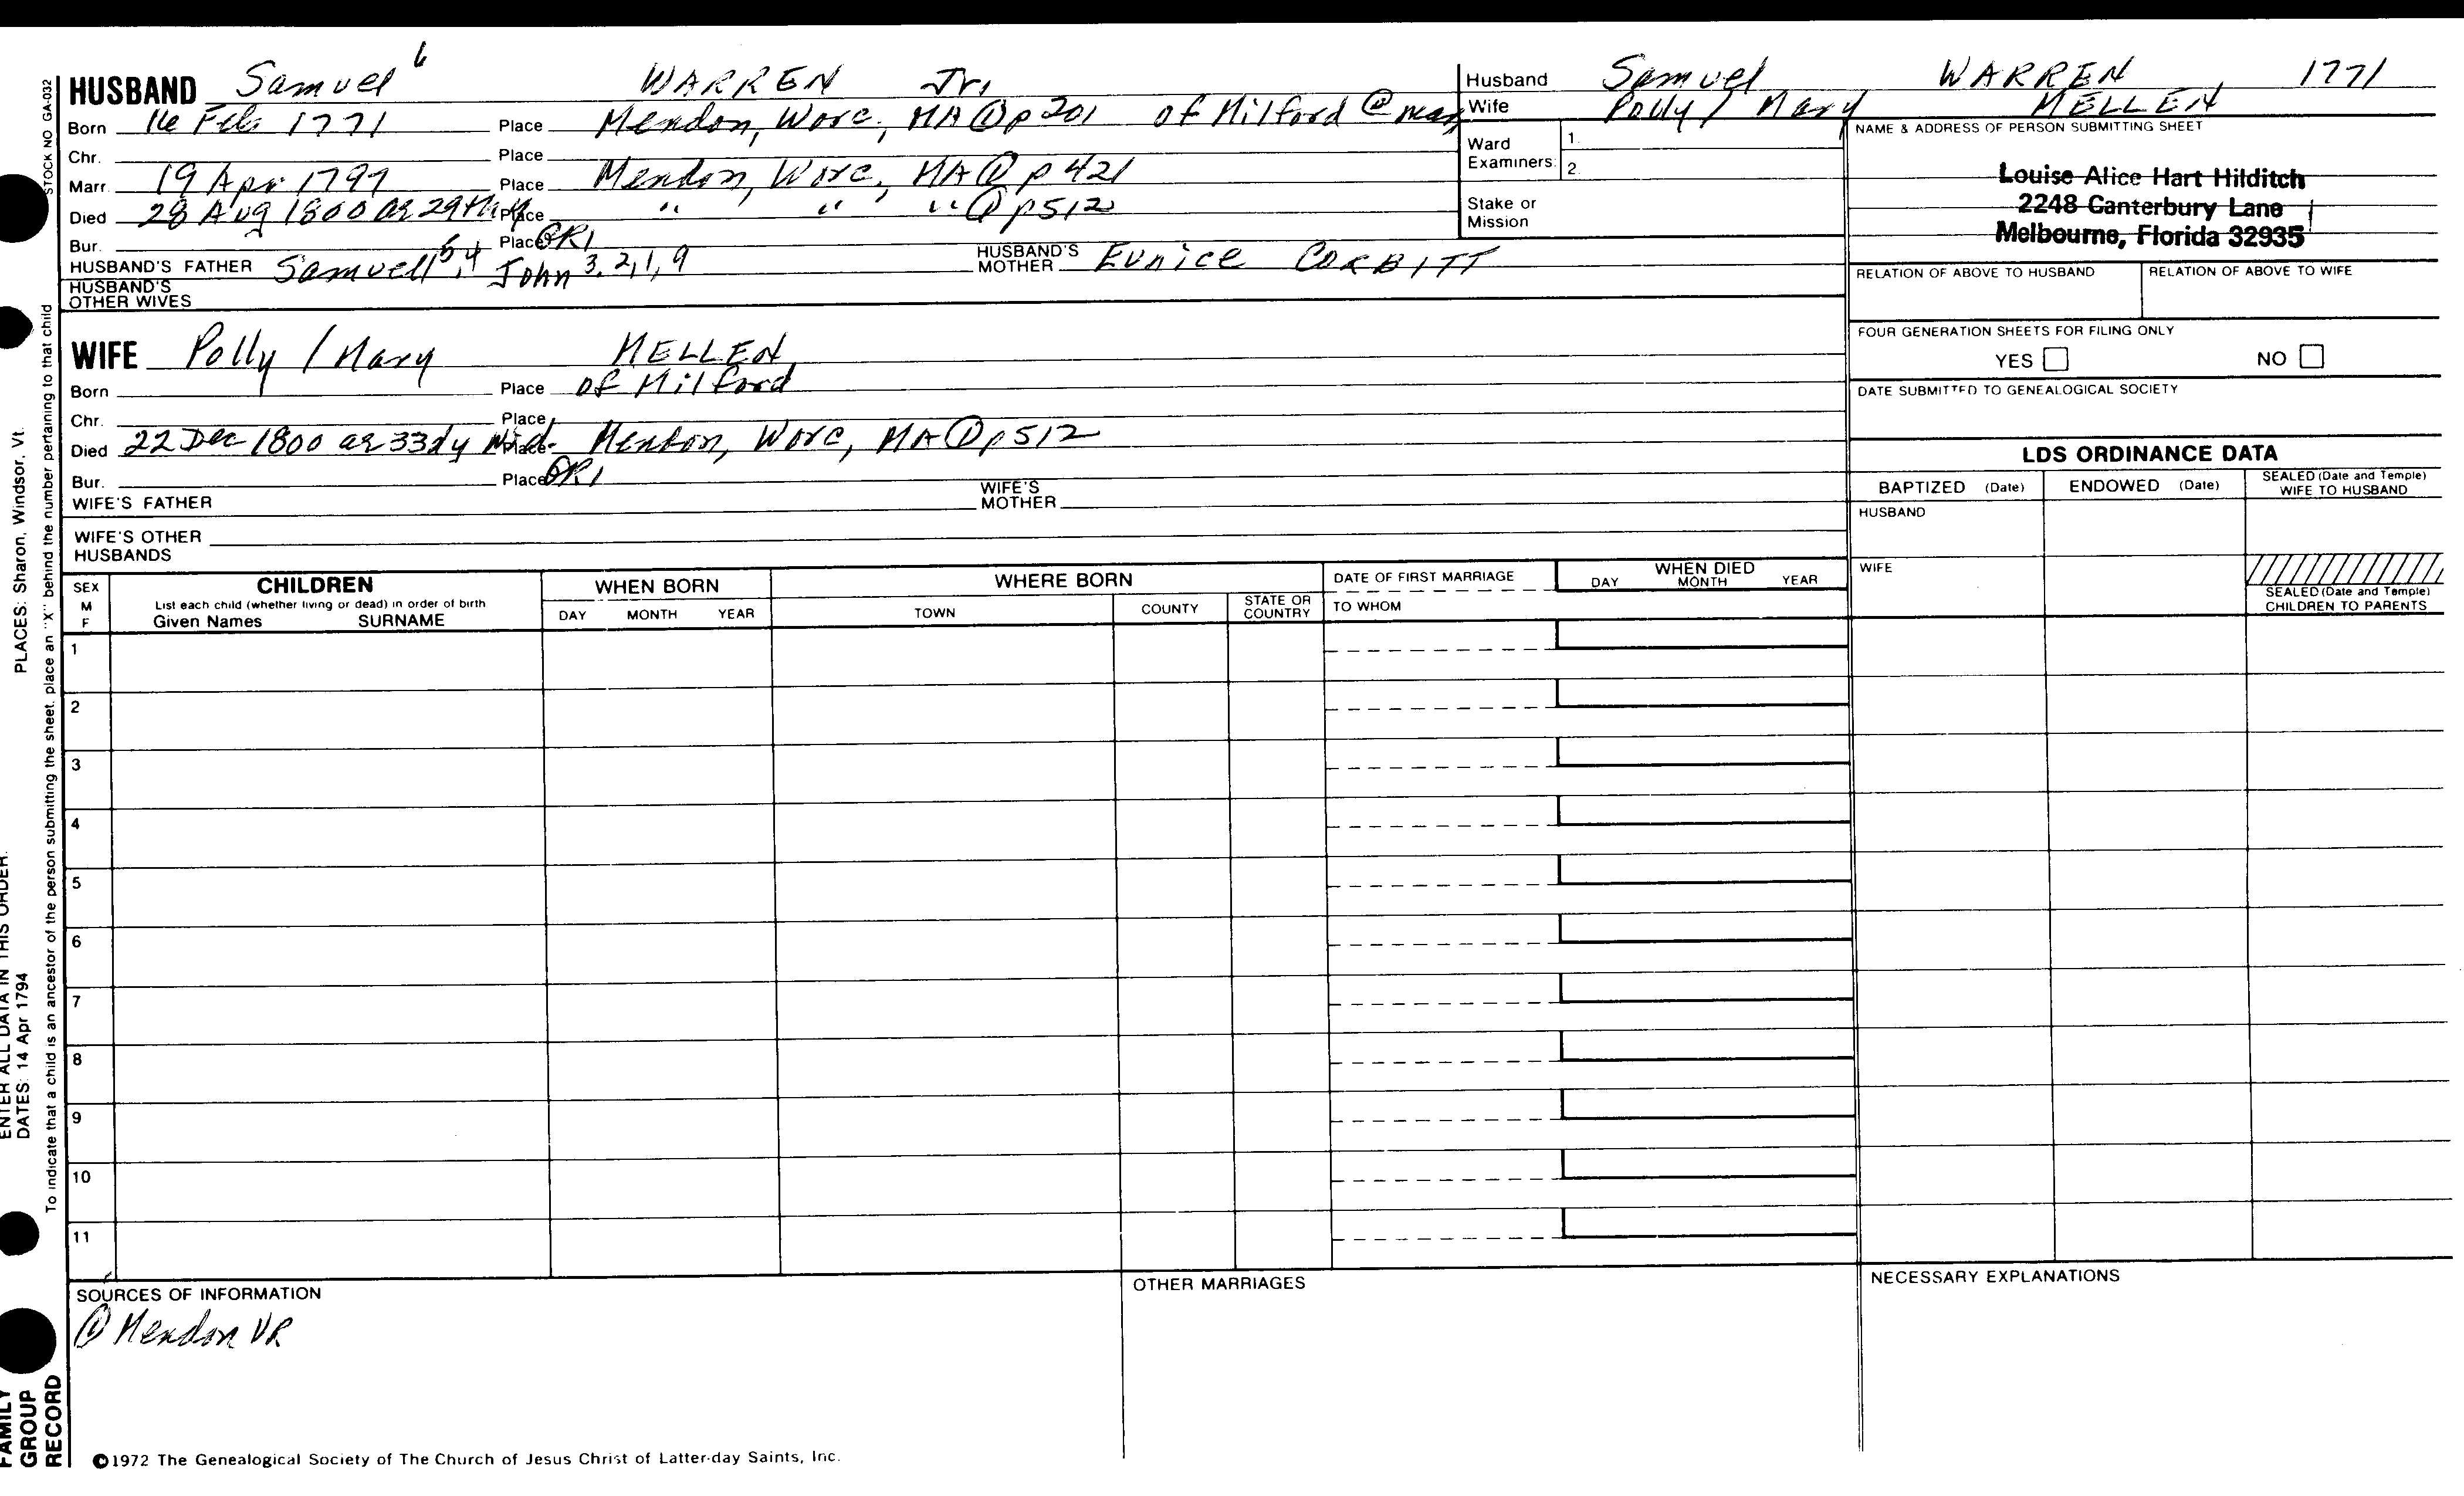 HUSBAND Samuel 6 WARREN Jr.
Born 16 Feb 1771 Place Mendon, Worc, MA ① p 201 of Milford @ mar
Chr. Place
Marr. 19 Apr 1797 Place Mendon, Worc, MA ① p 421
Died 28 Aug 1800 ae 29 Place " " " ① p512
Bur. Place GR1
HUSBAND'S FATHER Samuell 5,4 John 3,2,1,9 HUSBAND'S MOTHER Eunice CORBITT
HUSBAND'S OTHER WIVES
Husband Samuel WARREN 1771
Wife Polly / Mary MELLEN
Ward Examiners: 1. 2.
Stake or Mission
NAME & ADDRESS OF PERSON SUBMITTING SHEET
Louise Alice Hart Hilditch
2248 Canterbury Lane
Melbourne, Florida 32935
RELATION OF ABOVE TO HUSBAND RELATION OF ABOVE TO WIFE
FOUR GENERATION SHEETS FOR FILING ONLY
YES NO
DATE SUBMITTED TO GENEALOGICAL SOCIETY
WIFE Polly / Mary MELLEN
Born Place of Milford
Chr. Place
Died 22 Dec 1800 ae 33dy Wid. Place Mendon, Worc, MA ① p512
Bur. Place GR1
WIFE'S FATHER WIFE'S MOTHER
WIFE'S OTHER HUSBANDS
LDS ORDINANCE DATA
BAPTIZED (Date) ENDOWED (Date) SEALED (Date and Temple) WIFE TO HUSBAND
HUSBAND
WIFE
SEALED (Date and Temple) CHILDREN TO PARENTS
SEX M F
CHILDREN
List each child (whether living or dead) in order of birth
Given Names SURNAME
WHEN BORN
DAY MONTH YEAR
WHERE BORN
TOWN COUNTY STATE OR COUNTRY
DATE OF FIRST MARRIAGE
TO WHOM
WHEN DIED
DAY MONTH YEAR
1
2
3
4
5
6
7
8
9
10
11
SOURCES OF INFORMATION
① Mendon VR
OTHER MARRIAGES
NECESSARY EXPLANATIONS
©1972 The Genealogical Society of The Church of Jesus Christ of Latter-day Saints, Inc.
STOCK NO GA-032
To indicate that a child is an ancestor of the person submitting the sheet, place an "X" behind the number pertaining to that child
PLACES: Sharon, Windsor, Vt.
ENTER ALL DATA IN THIS ORDER:
DATES: 14 Apr 1794
FAMILY GROUP RECORD